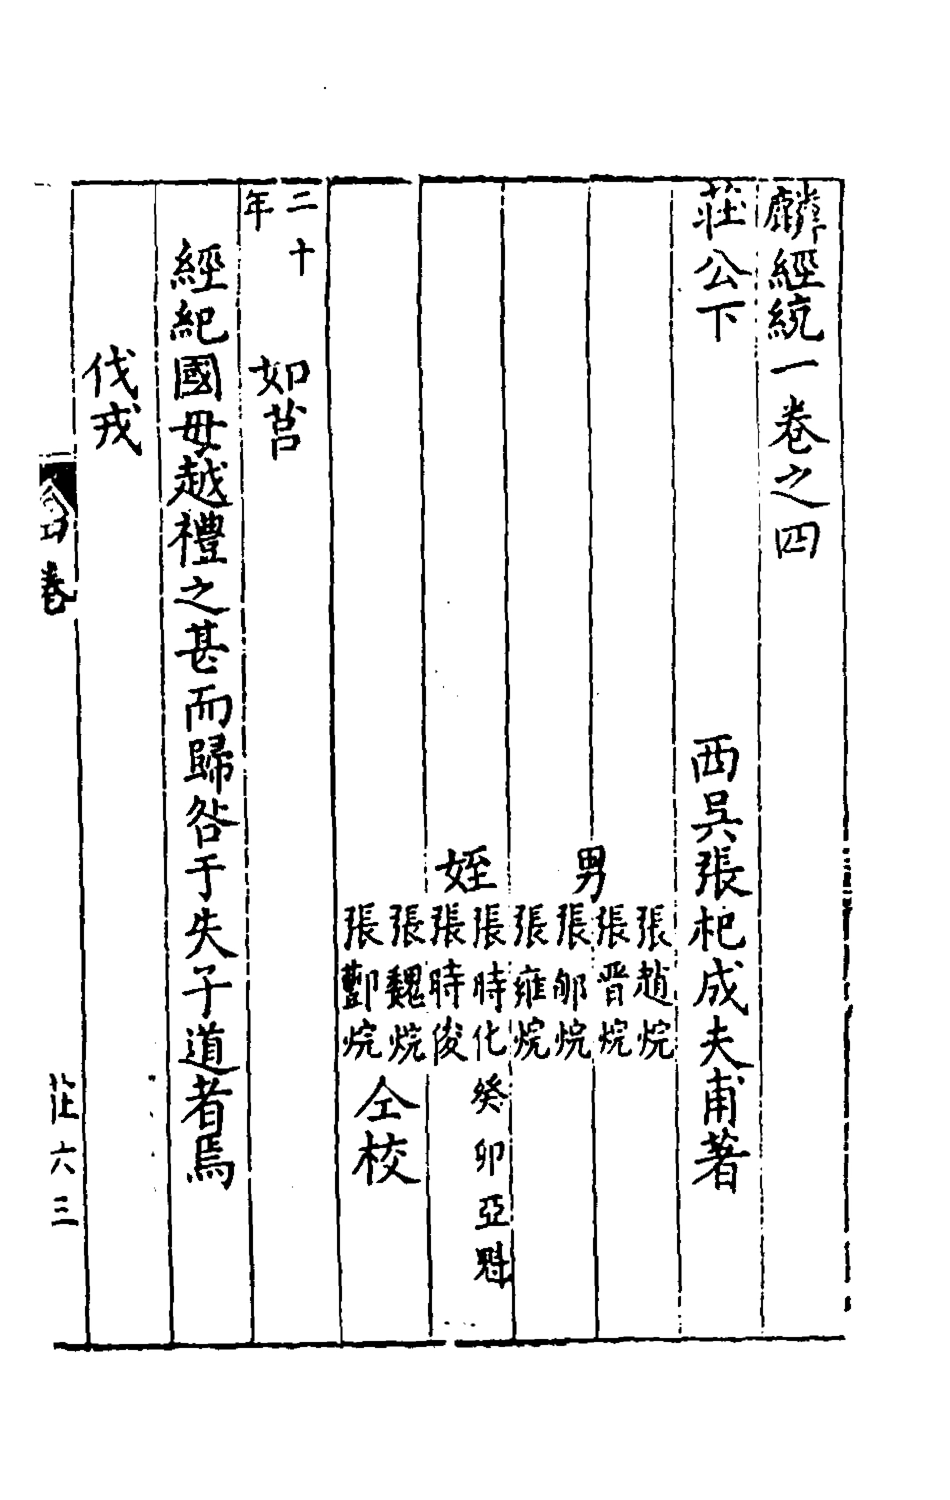 麟經統一卷之四
莊公下
西吳張杞成夫甫著
男
張趙烷
張晋烷
張郇烷
張雍烷
姪
張時化 癸卯亞魁
張時俊
張魏烷
張酆烷
仝校
二十年 如莒
經紀國母越禮之甚而歸咎于失子道者焉
伐戎
卷
莊六三